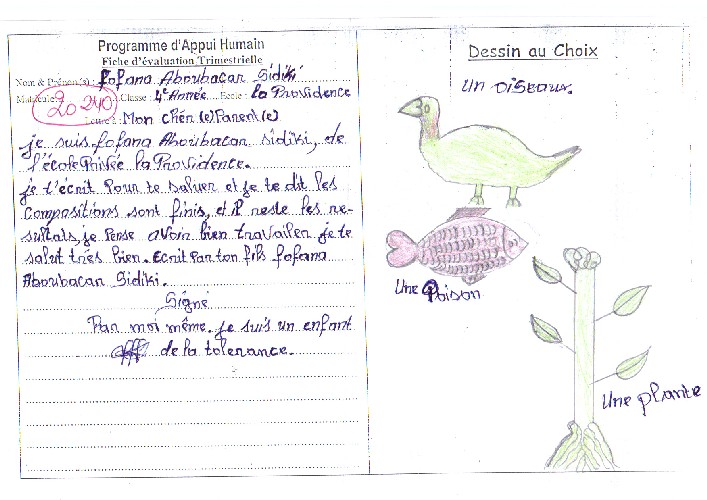 Programme d'Appui Humain
Fiche d'évaluation Trimestrielle
Nom & Prénom(s) : fofana Aboubacar Sidiki
Matricule : 20 240 Classe : 4e Année Ecole : la Providence
Lettre à : Mon chér(e) Parent(e)
je suis fofana Aboubacar sidiki, de
l'école Privée la Providence.
je t'écrit Pour te saluer et je te dit les
compositions sont finis, et il reste les re-
sultats, je Pense avoir bien travailer je te
salut trés bien. Ecrit Par ton fils fofana
Aboubacar Sidiki.
Signé
Par moi même. je suis un enfant
de la tolerance.
Dessin au Choix
Un oiseaux.
Une Poison
Une plante